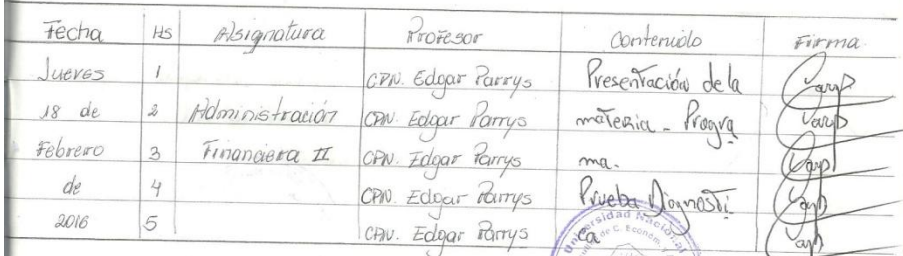 Fecha HS Asignatura Profesor Contenido Firma
Jueves 1 CPN. Edgar Parrys Presentación de la
18 de 2 Administración CPN. Edgar Parrys materia - Progra
Febrero 3 Financiera II CPN. Edgar Parrys ma.
de 4 CPN. Edgar Parrys Prueba Diagnosti
2016 5 CPN. Edgar Parrys ca